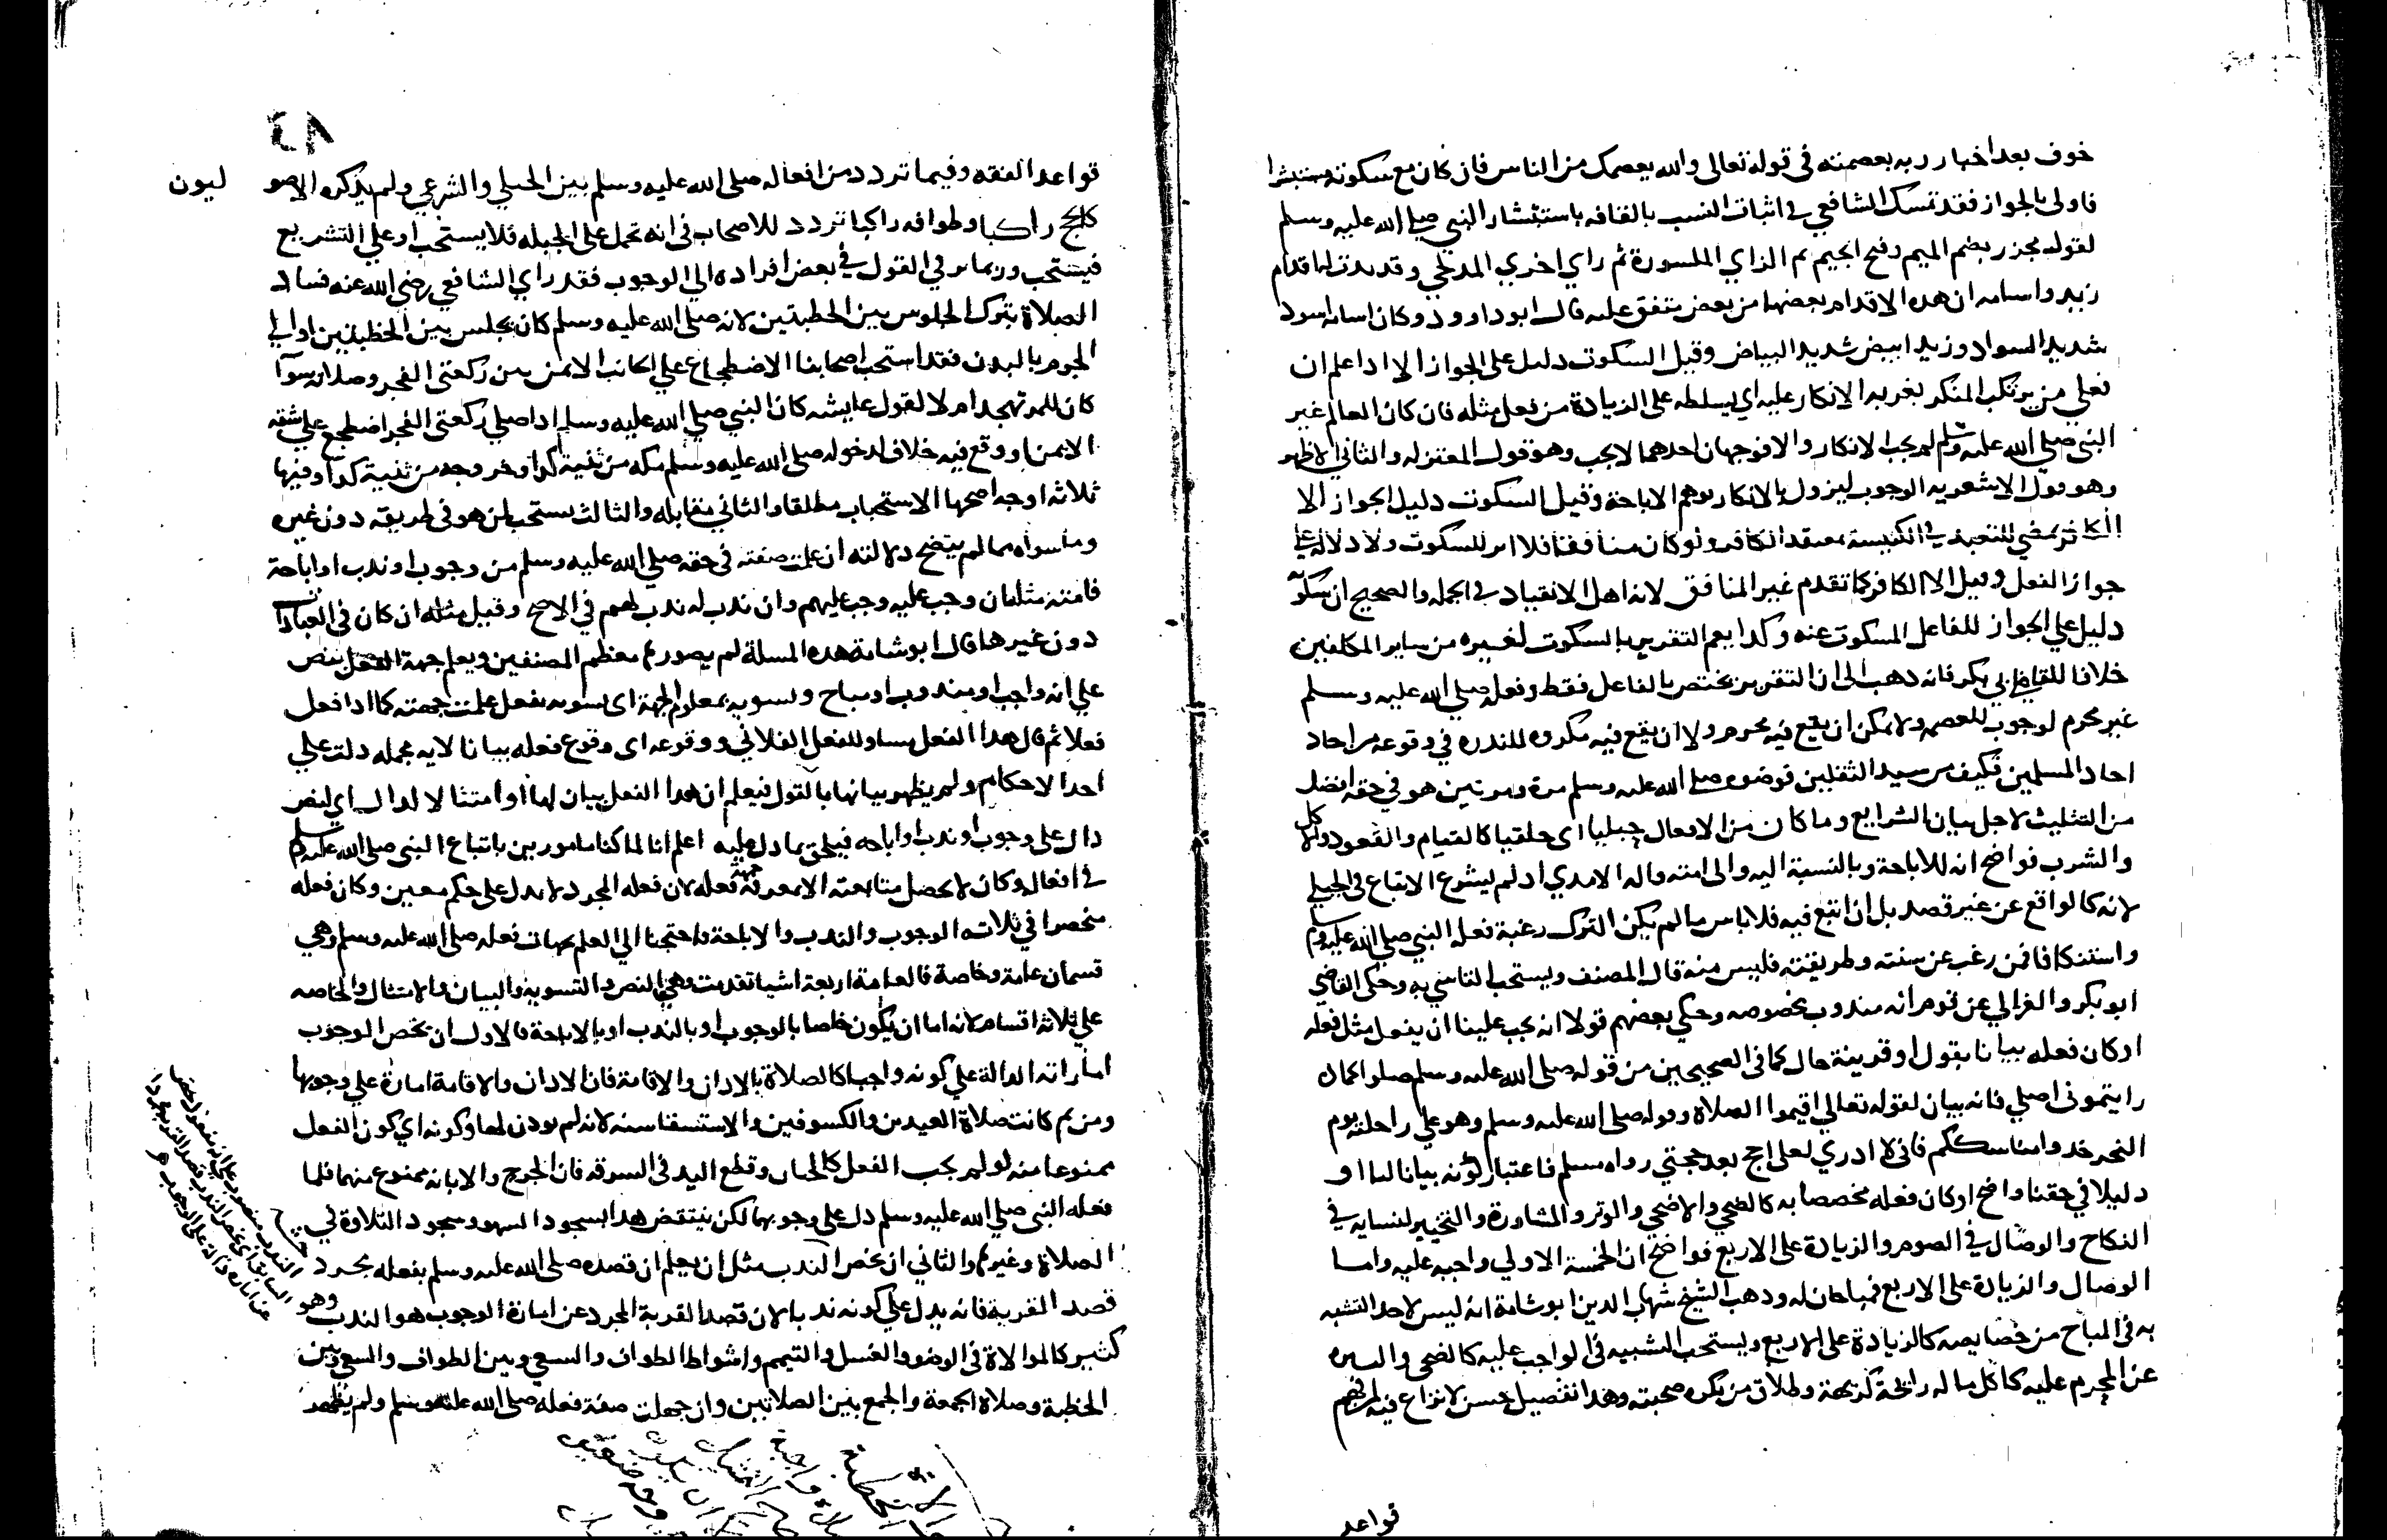 خوف بعد اخبار ربه بعصمته في قوله تعالى والله يعصمك من الناس فان كان مع سكوته مستبشرا
فاولى بالجواز فقد تمسك الشافعي في اثبات النسب بالقافه باستبشار النبي صلى الله عليه وسلم
لقوله مجزر بضم الميم وفتح الجيم ثم الزاي المكسورة ثم راي اخري المدلجي وقد بدت له اقدام
زيد واسامه ان هذه الاقدام بعضها من بعض متفق عليه قال ابو داوود وكان اسامه اسود
شديد السواد وزيد ابيض شديد البياض وقيل السكوت دليل على الجواز الا اذا علم ان
فعلي من يرتكب المنكر يغريه الانكار عليه اي يسلطه على الزيادة من فعل مثله فان كان العالم غير
النبي صلى الله عليه وسلم لم يجب الانكار والا فوجهان احدهما لا يجب وهو قول المعتزله والثاني الاظهر
وهو قول الاشعريه الوجوب ليزول بالانكار توهم الاباحة وقيل السكوت دليل الجواز الا
الكافر بمضي للتعبد في الكنيسة معتقد الكافر ولو كان منافقا فلا اثر للسكوت ولا دلاله على
جواز الفعل وقيل الا الكافر كما تقدم غير المنافق لانه اهل الانقياد في الجمله والصحيح ان سكوته
دليل علي الجواز للفاعل المسكوت عنه وكذا يعم التقرير بالسكوت لغيره من ساير المكلفين
خلافا للقاضي ابي بكر فانه ذهب الى ان التقرير يختص بالفاعل فقط وفعله صلى الله عليه وسلم
غير محرم لوجوب العصمه ولا يمكن ان يقع فيه محرم ولا ان يقع فيه مكروه للندره في وقوعه من احاد
احاد المسلمين فكيف من سيد الثقلين فوضوه صلى الله عليه وسلم مرة ومرتين هو في حقه افضل
من التثليث لاجل بيان الشرايع وما كان من الافعال جبليا اي خلقيا كالقيام والقعود والاكل
والشرب فواضح انه للاباحة وبالنسبة اليه والى امته قاله الامدي اذ لم يشرع الاتباع في الجبلي
لانه كالواقع عن غير قصد بل ان اتبع فيه فلا باس ما لم يكن الترك رغبة فعله النبي صلى الله عليه وسلم
واستنكافا فمن رغب عن سنته وطريقته فليس منه قال المصنف ويستحب التاسي به وحكى القاضي
ابو بكر والغزالي عن قوم انه مندوب بخصوصه وحكي بعضهم قولا انه يجب علينا ان يفعل مثل فعله
او كان فعله بيانا بقول او قرينة حال كما في الصحيحين من قوله صلى الله عليه وسلم صلوا كما
رايتموني اصلي فانه بيان لقوله تعالى اقيموا الصلاة وقوله صلى الله عليه وسلم وهو علي راحلته يوم
النحر خذوا مناسككم فاني لا ادري لعلي احج بعد حجتي رواه مسلم فاعتبار كونه بيانا لنا او
دليلا في حقنا واضح او كان فعله مخصصا به كالضحي والاضحي والوتر والمشاورة والتخيير لنسايه في
النكاح والوصال في الصوم والزيادة على الاربع فواضح ان الخمسة الاولي واجبه عليه واما
الوصال والزيادة على الاربع فمباحان له وذهب الشيخ شهاب الدين ابو شامة انه ليس لاحد التشبه
به في المباح من خصايصه كالزيادة على الاربع ويستحب التشبيه في الواجب عليه كالضحى والتنزه
عن المحرم عليه كاكل ما له رائحة كريهة وطلاق من يكره صحبته وهذا تفصيل حسن لا نزاع فيه
قواعد
قواعد الفقه وفيما تردد من افعاله صلى الله عليه وسلم بين الجبلي والشرعي ولم يذكره الاصوليون
كالحج راكبا وطوافه راكبا تردد للاصحاب في انه تحمل على الجبله فلا يستحب او على التشريع
فيستحب وربما يرقي القول في بعض افراده الى الوجوب فقد راي الشافعي رضي الله عنه فساد
الصلاة بترك الجلوس بين الخطبتين لانه صلى الله عليه وسلم كان يجلس بين الخطبتين او الي
الجزم بالندب فقد استحب اصحابنا الاضطجاع علي الجانب الايمن بين ركعتي الفجر وصلاته سوآ
كان للمرء تهجد ام لا لقول عايشه كان النبي صلى الله عليه وسلم اذا صلى ركعتي الفجر اضطجع على شقه
الايمن او وقع فيه خلاف لدخوله صلى الله عليه وسلم مكه من ثنية كدا وخروجه من ثنية كدا وفيها
ثلاثه اوجه اصحها الاستحباب مطلقا والثاني مقابله والثالث يستحب لمن هو في طريقه دون غيره
وما سواه مما لم يتضح دلالته ان علمت صفته في حقه صلى الله عليه وسلم من وجوب او ندب او اباحة
فامته مثله ان وجب عليه وجب عليهم وان ندب له ندب لهم في الاصح وقيل مثله ان كان في العبادات
دون غيرها قال ابو شامة هذه المسلة لم يصورها معظم المصنفين ويعلم جهة الفعل بنص
علي انه واجب او مندوب او مباح وتسويه بمعلوم الجهة اي تسويه بفعل علمت جهته كما اذا فعل
فعلا ثم قال هذا الفعل مساو للفعل الفلاني ووقوعه اي وقوع فعله بيانا لايه مجمله دلت علي
احد الاحكام ولم يظهر بيانها بالقول فيعلم ان هذا الفعل بيان لها او امتثالا لدال اي لنص
دال على وجوب او ندب او اباحه فيلحق بما دل عليه اعلم انا لما كنا مامورين باتباع النبي صلى الله عليه وسلم
في افعاله وكان لا يحصل متابعته الا بمعرفة جهة فعله لان فعله المجرد لا يدل على حكم معين وكان فعله
منحصرا في ثلاثه الوجوب والندب والاباحة احتجنا الي العلم بجهات فعله صلى الله عليه وسلم وهي
قسمان عامة وخاصة فالعامة اربعة اشيا تقدمت وهي النص والتسويه والبيان والامتثال والخاصه
علي ثلاثة اقسام لانه اما ان يكون خاصا بالوجوب او بالندب او بالاباحة فالاول ان يخص الوجوب
اماراته الدالة علي كونه واجبا كالصلاة بالاذان والاقامة فان الاذان والاقامة امارة علي وجوبها
ومن ثم كانت صلاة العيدين والكسوفين والاستسقا سنه لانه لم يوذن لها وكونه اي كون الفعل
ممنوعا منه لو لم يجب الفعل كالختان وقطع اليد في السرقه فان الجرح والابانه ممنوع منهما فلما
فعله النبي صلى الله عليه وسلم دل على وجوبهما لكن ينتقض هذا بسجود السهو وسجود التلاوة في
الصلاة وغيرهما والثاني ان يخص الندب مثل ان يعلم ان قصده صلى الله عليه وسلم بفعله مجرد
قصد القربة فانه يدل علي كونه ندبا لان قصد القربة المجرد عن امارة الوجوب هو الندب وهو
كثير كالموالاة في الوضوء والغسل والتيمم واشواط الطواف والسعي وبين الطواف والسعي وبين
الخطبة وصلاة الجمعة والجمع بين الصلاتين وان جهلت صفة فعله صلى الله عليه وسلم ولم يظهر